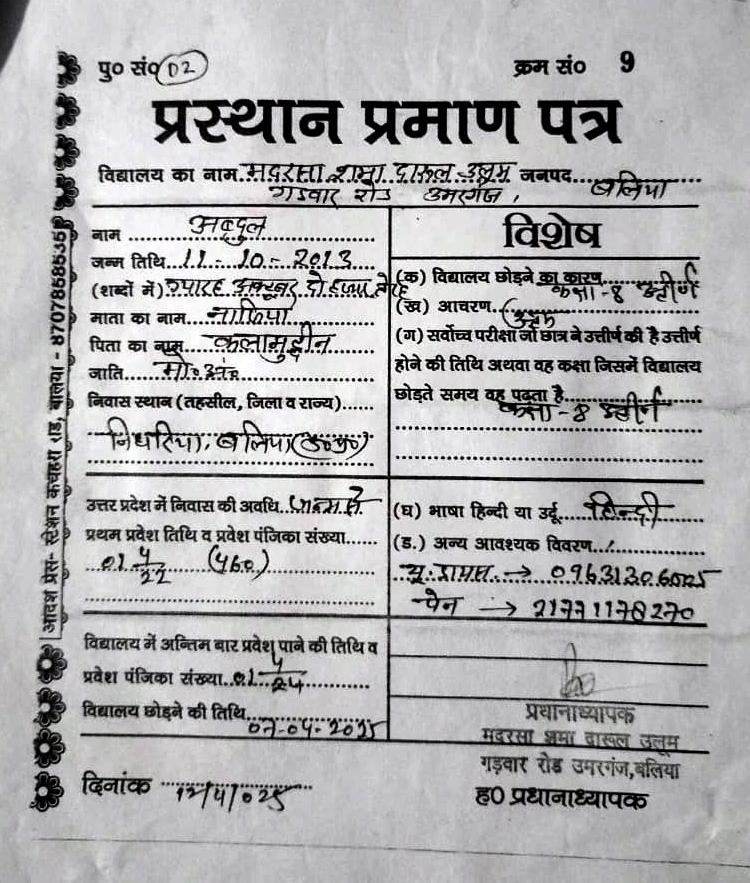 पु० सं० 02
क्रम सं० 9
प्रस्थान प्रमाण पत्र
विद्यालय का नाम मदरसा शमा दारूल उलूम जनपद बलिया
गडवार रोड उमरगंज,
नाम अब्दुल
जन्म तिथि 11-10-2013
(शब्दों में) ग्यारह अक्टूबर दो हजार तेरह
माता का नाम
पिता का नाम कलामुद्दीन
जाति मो० अं०
निवास स्थान (तहसील, जिला व राज्य)
निधरिया, बलिया (उ०प्र०)
विशेष
(क) विद्यालय छोड़ने का कारण
कक्षा-8 उत्तीर्ण
(ख) आचरण उत्तम
(ग) सर्वोच्च परीक्षा जो छात्र ने उत्तीर्ण की है उत्तीर्ण
होने की तिथि अथवा वह कक्षा जिसमें विद्यालय
छोड़ते समय वह पढ़ता है
कक्षा-8 उत्तीर्ण
उत्तर प्रदेश में निवास की अवधि जन्म से
प्रथम प्रवेश तिथि व प्रवेश पंजिका संख्या
01 4/22 (460)
(घ) भाषा हिन्दी या उर्दू हिन्दी
(ड.) अन्य आवश्यक विवरण
→ 09631306025
पेन → 21771178270
विद्यालय में अन्तिम बार प्रवेश पाने की तिथि व
प्रवेश पंजिका संख्या 01 4/24
विद्यालय छोड़ने की तिथि
07-04-2025
प्रधानाध्यापक
मदरसा शमा दारूल उलूम
गड़वार रोड उमरगंज, बलिया
दिनांक 12/4/025
ह0 प्रधानाध्यापक
आदर्श प्रेस- स्टेशन कचहरी रोड, बलिया - 8707858535